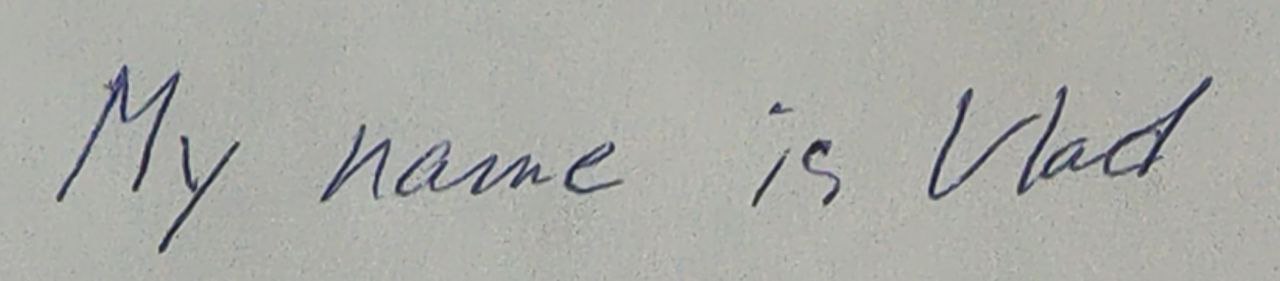 My name is Vlad